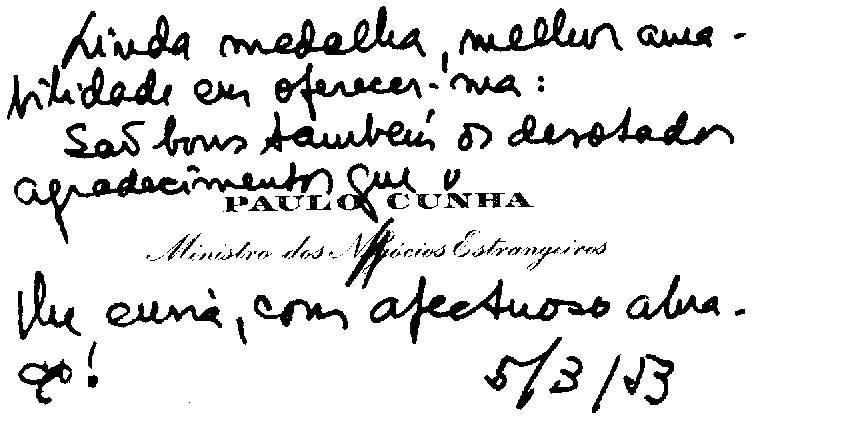 Linda medalha, melhor ama-
bilidade em oferecer-ma:
São bons também os devotados
agradecimentos que o
PAULO CUNHA
Ministro dos Negócios Estrangeiros
lhe envia, com afectuoso abra-
ço!
5/3/53